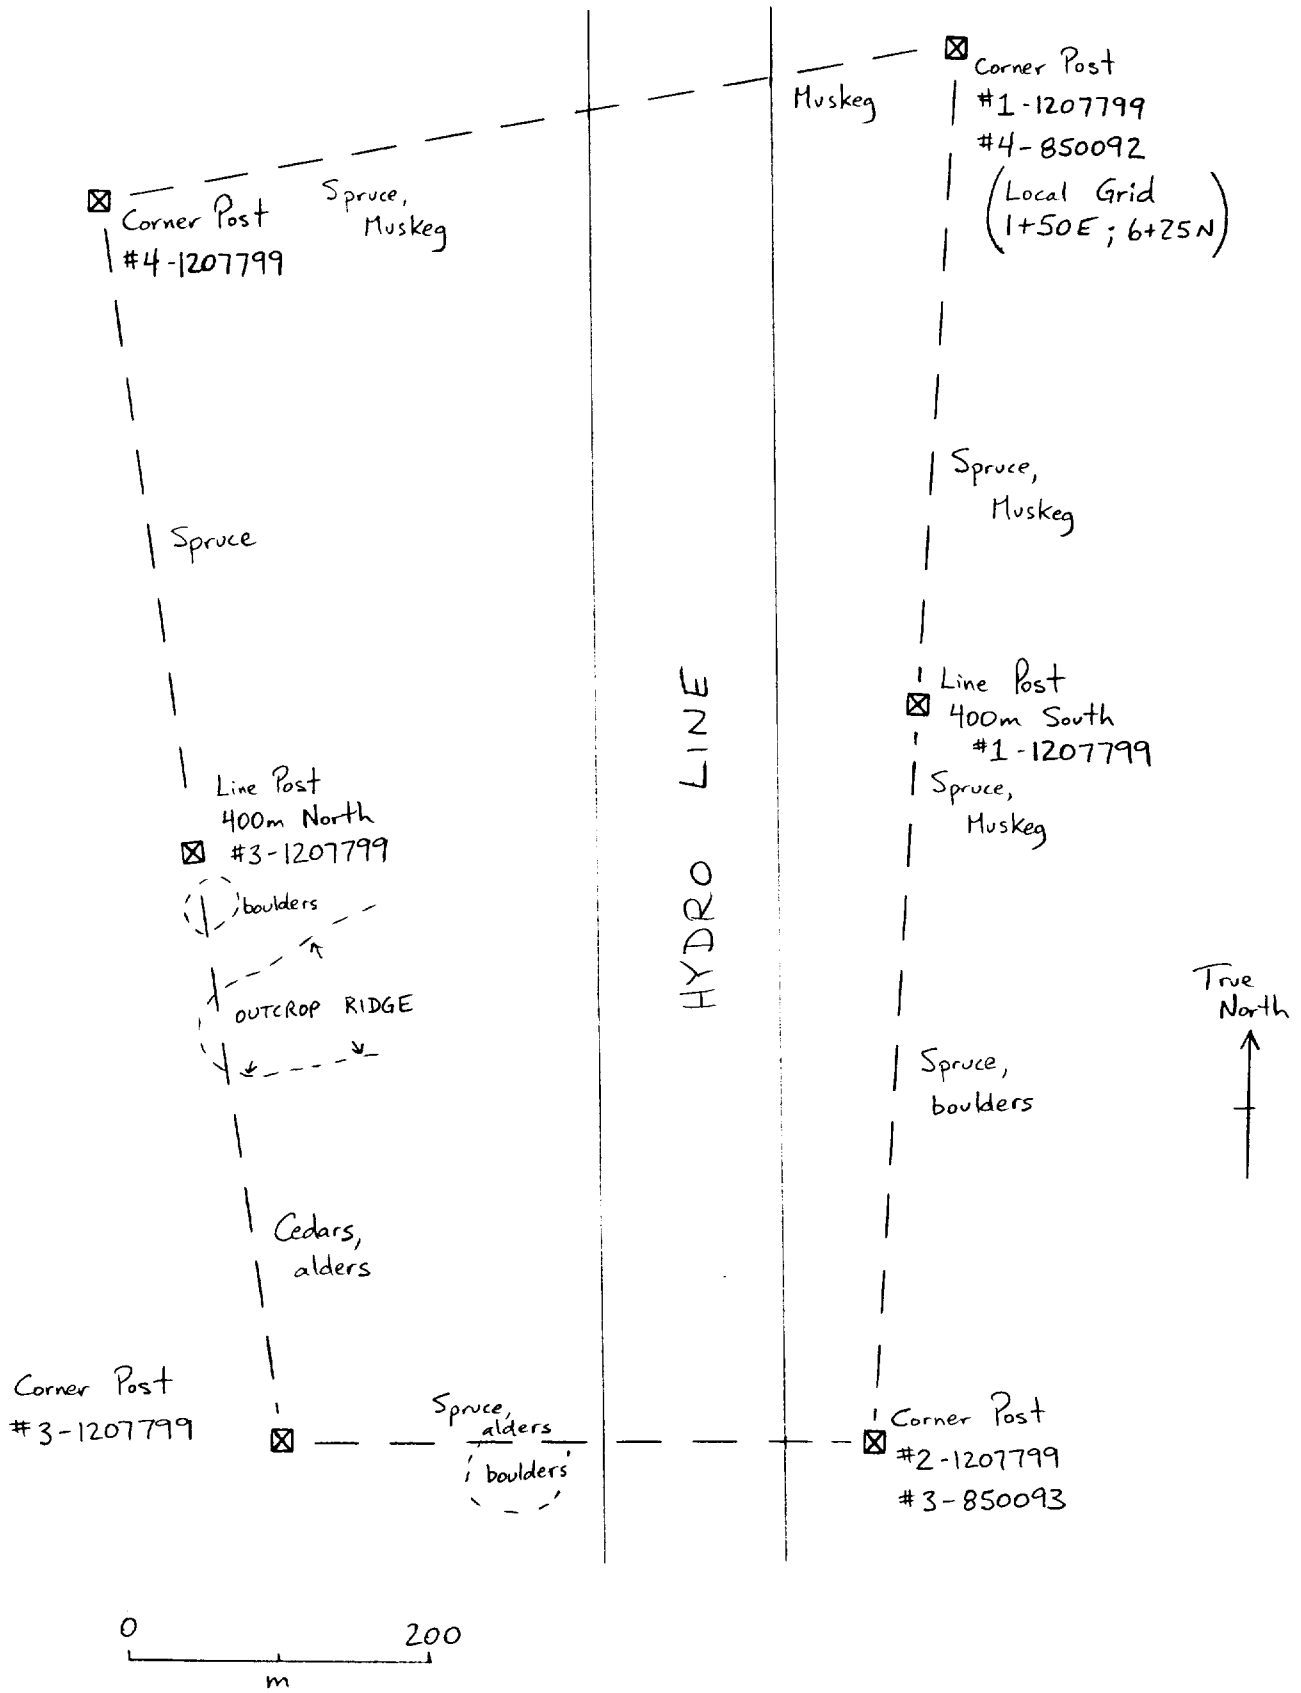 Corner Post
#1-1207799
#4-850092
(Local Grid
1+50E ; 6+25N)
Muskeg
Spruce,
Muskeg
Corner Post
#4-1207799
Spruce,
Muskeg
Spruce
Line Post
400m South
#1-1207799
Spruce,
Muskeg
Line Post
400m North
#3-1207799
boulders
OUTCROP RIDGE
HYDRO LINE
True
North
Spruce,
boulders
Cedars,
alders
Corner Post
#3-1207799
Spruce,
alders
boulders
Corner Post
#2-1207799
#3-850093
0 200
m